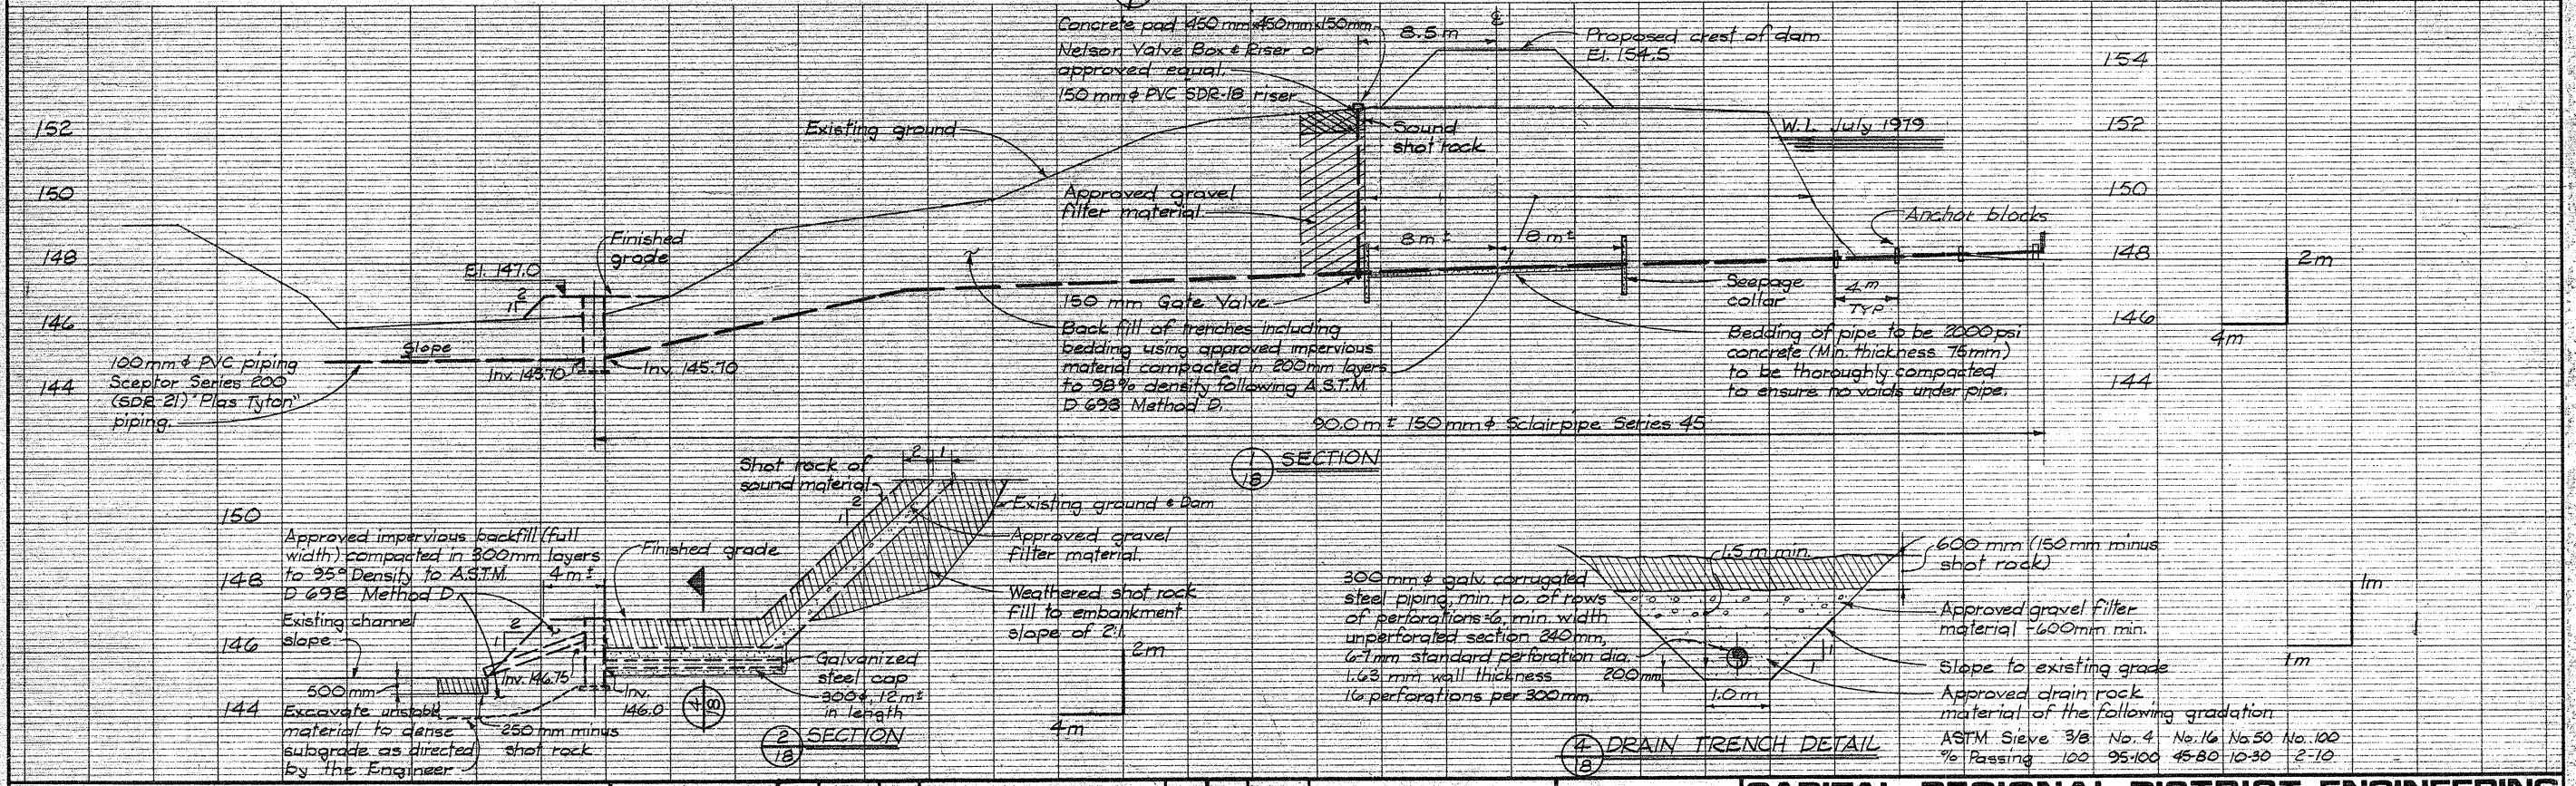 Concrete pad 450mm×450mm×150mm
Nelson Valve Box & Riser or
approved equal.
150 mm ø PVC SDR-18 riser
8.5 m
℄
Proposed crest of dam
El. 154.5
154
152
150
148
146
144
152
150
148
146
144
Existing ground
Sound
shot rock
W.L. July 1979
Approved gravel
filter material
Anchor blocks
Finished
grade
El. 147.0
2
1
8 m±
8 m±
2m
4m
150 mm Gate Valve
Seepage
collar
4 m
TYP.
Back fill of trenches including
bedding using approved impervious
material compacted in 200mm layers
to 98% density following A.S.T.M.
D 698 Method D.
Bedding of pipe to be 2000 psi
concrete (Min. thickness 75mm)
to be thoroughly compacted
to ensure no voids under pipe.
Slope
100mm ø PVC piping
Sceptor Series 200
(SDR 21) "Plas Tyton"
piping.
Inv. 145.70
Inv. 145.70
90.0 m± 150 mm ø Sclairpipe Series 45
1
18
SECTION
Shot rock of
sound material
2
1
2
1
Existing ground & Dam
Approved gravel
filter material.
Weathered shot rock
fill to embankment
slope of 2:1.
150
148
146
144
Approved impervious backfill (full
width) compacted in 300mm layers
to 95% Density to A.S.T.M.
D 698 Method D.
Finished grade
4 m±
Existing channel
slope
2
1
500 mm
Inv. 146.75
Inv.
146.0
Galvanized
steel cap
300ø, 12 m±
in length
Excavate unstable
material to dense
subgrade as directed
by the Engineer
250 mm minus
shot rock
4
18
2
18
SECTION
2m
4m
1.5 m min.
600 mm (150 mm minus
shot rock)
300 mm ø galv. corrugated
steel piping, min. no. of rows
of perforations=6, min. width
unperforated section 240mm,
6-7mm standard perforation dia.
1.63 mm wall thickness
16 perforations per 300mm.
200mm
1.0 m
1
1
Approved gravel filter
material -600mm min.
Slope to existing grade
Approved drain rock
material of the following gradation
ASTM Sieve 3/8 No. 4 No. 16 No. 50 No. 100
% Passing 100 95-100 45-80 10-30 2-10
1m
1m
4
18
DRAIN TRENCH DETAIL
CAPITAL REGIONAL DISTRICT ENGINEERING